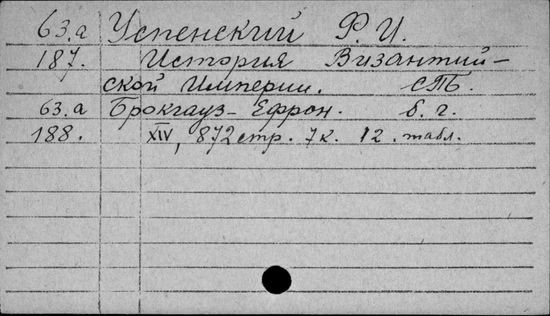 63.а Успенский Ф. И.
187. История Византий-
ской Империи. СПБ.
63.а Брокгауз-Ефрон. б. г.
188. XIV, 872 стр. 7 к. 12. табл.